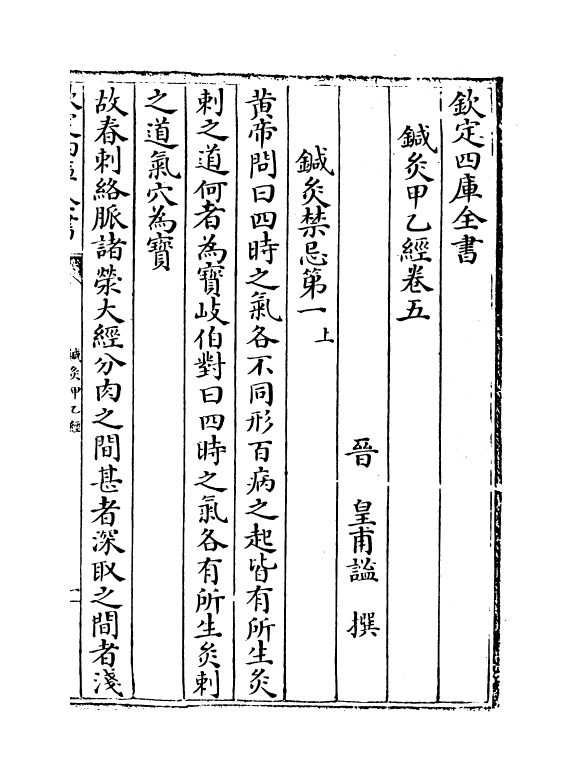 欽定四庫全書
鍼灸甲乙經卷五
晉　皇甫謐　撰
鍼灸禁忌第一上
黄帝問曰四時之氣各不同形百病之起皆有所生灸
刺之道何者為寶岐伯對曰四時之氣各有所生灸刺
之道氣穴為寶
故春刺絡脈諸滎大經分肉之間甚者深取之間者淺
鍼灸甲乙經